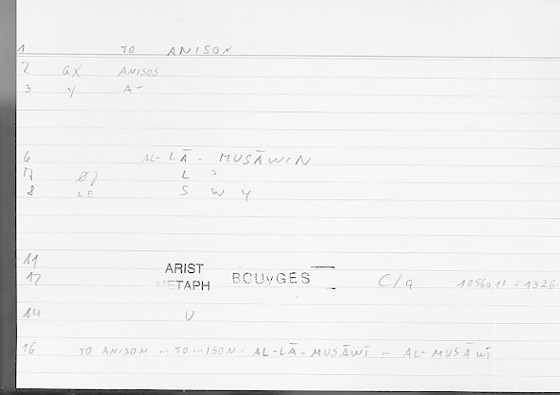 1 TO ANISON
2 GX ANISOS
3 Y A-
6 AL-LĀ-MUSĀWIN
17 Ø7 L ɔ
8 LE S W Y
11
12 ARIST METAPH BOUyGES C/a 1056a10 = 1326
14 U
16 TO ANISON ... TO ... ISON : AL-LĀ-MUSĀWĪ ... AL-MUSĀWĪ